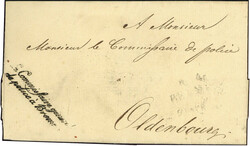 A Monsieur
Monsieur le Commissaire de police
Commissaire général
de police à Brême
Oldenbourg